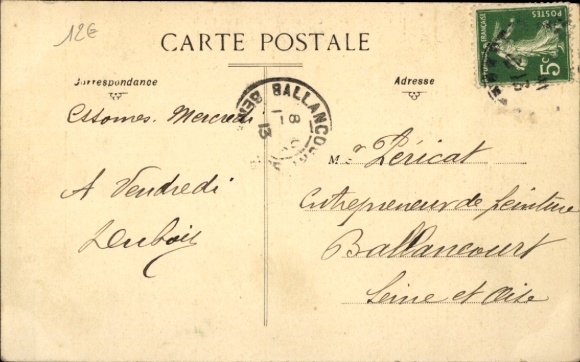 12€
CARTE POSTALE
Correspondance
Adresse
POSTES
5c
BALLANCOURT
8
13
Essomes. Mercredi
A Vendredi
Dubois
Mr Péricat
Entrepreneur de Peinture
Ballancourt
Seine et Oise